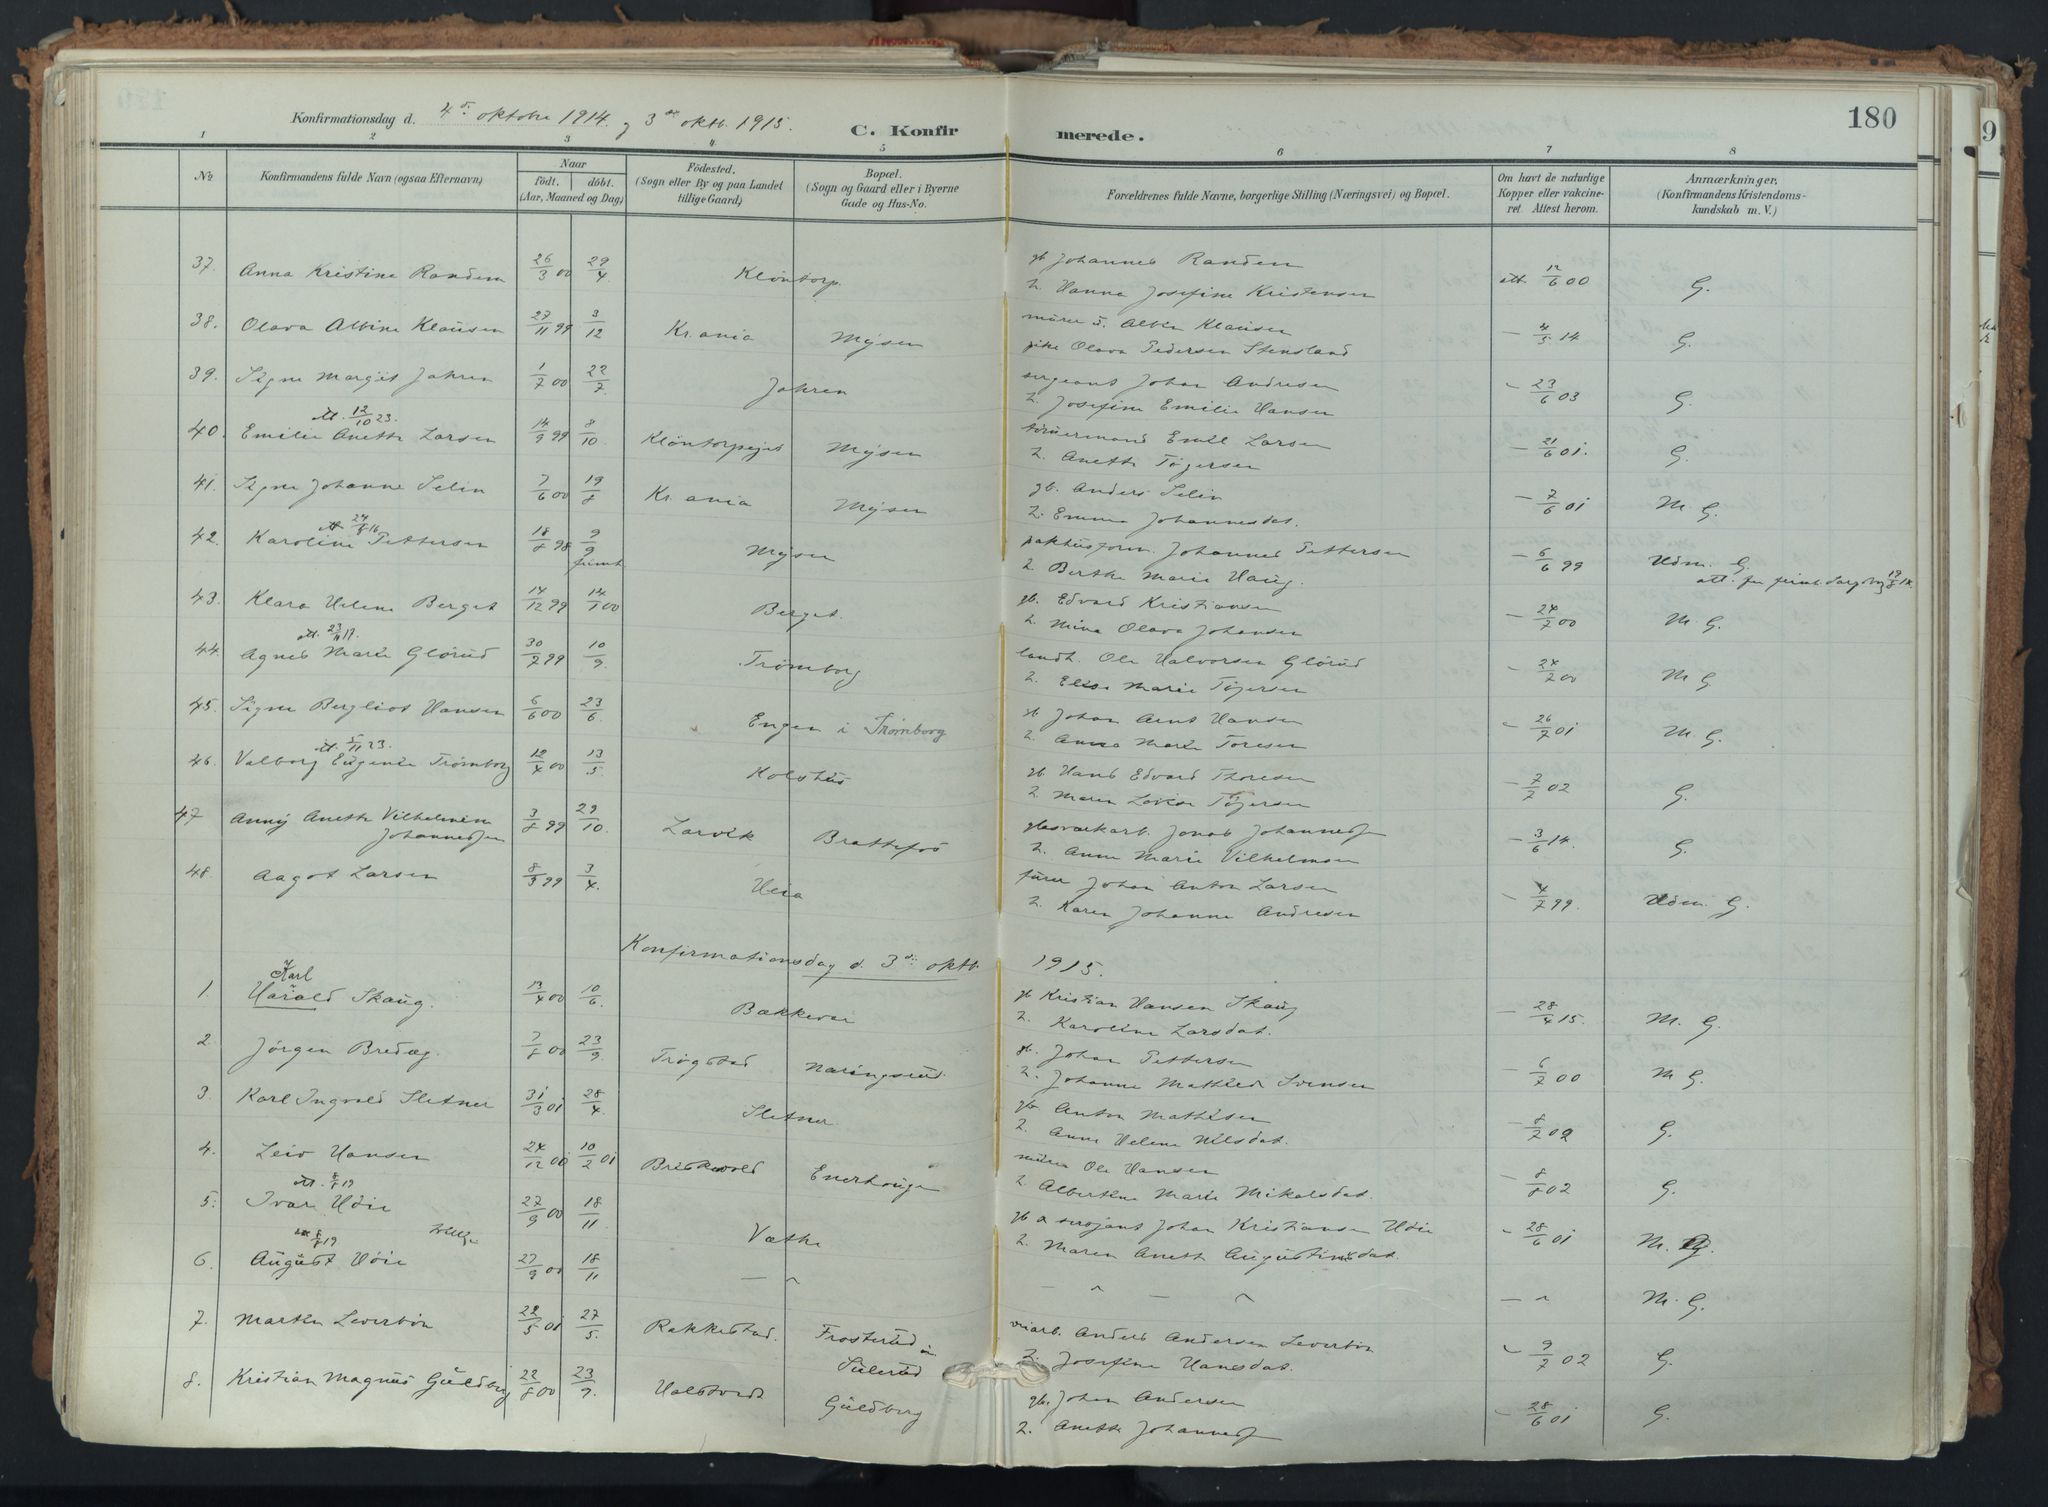 180
Konfirmationsdag d. 4de oktobre 1914. og 3de oktb. 1915.
C. Konfirmerede.
1 2 3 4 5 6 7 8
№
Konfirmandens fulde Navn (ogsaa Efternavn)
Naar
födt. döbt.
(Aar, Maaned og Dag)
Födested.
(Sogn eller By og paa Landet
tillige Gaard)
Bopæl.
(Sogn og Gaard eller i Byerne
Gade og Hus-No.
Forældrenes fulde Navne, borgerlige Stilling (Næringsvei) og Bopæl.
Om havt de naturlige
Kopper eller vakcine-
ret Attest herom.
Anmærkninger.
(Konfirmandens Kristendoms-
kundskab m. V.)
37. Anna Kristine Randem 26/3 00 29/4 Kløntorp. gb Johannes Randem att. 12/6 00 G.
2. Hanna Josefine Kristensen
38. Olava Albine Klausen 27/11 99 3/12 Kr.ania Mysen murer s. Albin Klausen — 4/5 14 G.
pike Olava Pedersen Stensland
39. Signe Margit Jahren 1/7 00 22/7 Jahren sergeant Johan Andresen - 23/6 03 G.
2. Josefine Emilie Hansen
att. 12/10 23.
40. Emilie Anette Larsen 14/9 99 8/10 Kløntorpejet Mysen tømermand Emil Larsen — 21/6 01. G.
2. Anette Tøgersen
41. Signe Johanne Selin 7/6 00 19/8 Kr.ania Mysen gb. Anders Selin — 7/6 01 M. G.
2. Emma Johannesdat.
att. 24/8 16
42. Karoline Pettersen 18/8 98 9/9 frimt Mysen pakhusform. Johannes Pettersen — 6/6 99 Udm. G.
2 Berthe Marie Haug.
43. Klara Helene Berget 14/12 99 14/1 00 Berget. gb. Edvard Kristiansen — 24/7 00 M. G.
2. Mina Olava Johansen
att. 23/11 17.
44. Agnes Marie Glørud 30/7 99 10/9. Trømborg landh. Ole Halvorsen Glørud — 24/7 00 M G
2. Elise Marie Tøgersen
45. Signe Bergliot Hansen 6/6 00 23/6. Engen i Trømborg gb Johan Arnt Hansen - 26/7 01 M. G.
2. Anna Marie Toresen
att. 5/11 23.
46. Valborg Eugenie Trømborg 12/4 00 13/5. Kolshus gb. Hans Edvard Thoresen — 7/7 02 G.
2. Maren Lovise Tøgersen
47 Anny Anette Vilhelmine
Johannessen 3/8 99 29/10. Larvik Brattefos glasværkarb. Jonas Johannessen — 3/6 14. G.
2. Anne Marie Vilhelmsen
48. Aagot Larsen 8/3 99 3/4. Heia fører Johan Anton Larsen - 4/7 99. Udm. G.
2. Karen Johanne Andresen
Konfirmationsdag d. 3de oktb. 1915.
Karl
1. Harald Skaug. 13/4 00 10/6. Bækkevar gb Kristian Hansen Skaug — 28/4 15. M. G.
2. Karoline Larsdat.
2. Jørgen Bredæg. 7/8 00 23/9. Trøgstad Næringsrud gb. Johan Pettersen — 6/7 00 M G.
2. Johanne Mathilde Svensen
3. Karl Ingvald Sletner 31/3 01 28/4. Sletner gb Anton Mathisen — 8/7 02 G.
2. Anne Helene Nilsdat.
4. Leiv Hansen 24/12 00 10/2 01 Enerhaugen murer Ole Hansen — 8/8 02 G.
2 Albertine Marie Mikalsdat.
att. 8/8 19
5. Ivar Udie 27/9 00 18/11 Vætke gb & serajant Johan Kristiansen Udie - 28/6 01 M. G.
2. Maren Aneth Augustinusdat.
att 8/8 19
6. August Udie 27/9 00 18/11 — " — " — " — " M. G.
7. Martin Leverbøn 22/5 01 27/5. Rakkestad. Frosterud i Sulerud veiarb. Anders Andersen Leverbøn - 9/7 02 G.
2. Josefine Hansdat.
8. Kristian Magnus Guldberg 22/8 00 23/9. Halstvedt Guldberg gb. Johan Andersen — 28/6 01 G.
2. Anette Johannessen